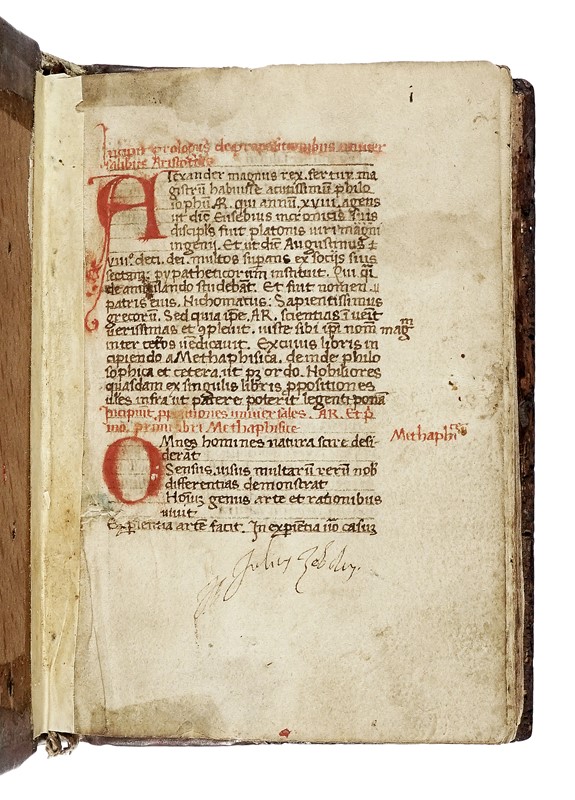 i
Incipit prologus de propositionibus univer
salibus Aristotilis
Alexander magnus rex fertur ma
gistrū habuisse acutissimū philo
sophū AR. qui annū .xviii. agens
ut dicit Eusebius in cronicis suis
discipls fuit platonis viri magni
ingenij. Et ut dicit Augustinus
viii. de ci. dei. multos superans ex socijs suis
sectam pypatheticorum instituit. Qui
deambulando studebāt. Et fuit nomen
patris eius. Nichomatus: Sapientissimus
grecorū. Sed quia ipe. AR. scientias īvenit
verissimas et 9plevit. iuste sibi ipi nom magni
inter ceteros vēdicavit. Ex cuius libris in
cipiendo a Methaphisica. deinde philo
sophica et cetera. ut pz ordo. Nobiliores
quasdam ex singulis libris ppositiones
illes infra ut patere poterit legenti ponā
Incipiūt ppositiones universales. AR. Et p
mo. primi libri Methaphisice
Omnes homines natura scire desi
derāt
Sensus. visus multarū rerū nob
differentias demonstrat
Hoīuz genus arte et rationibus
vivit
Expientia artē facit. In expiētia vō casuz
Methaphi
Julius